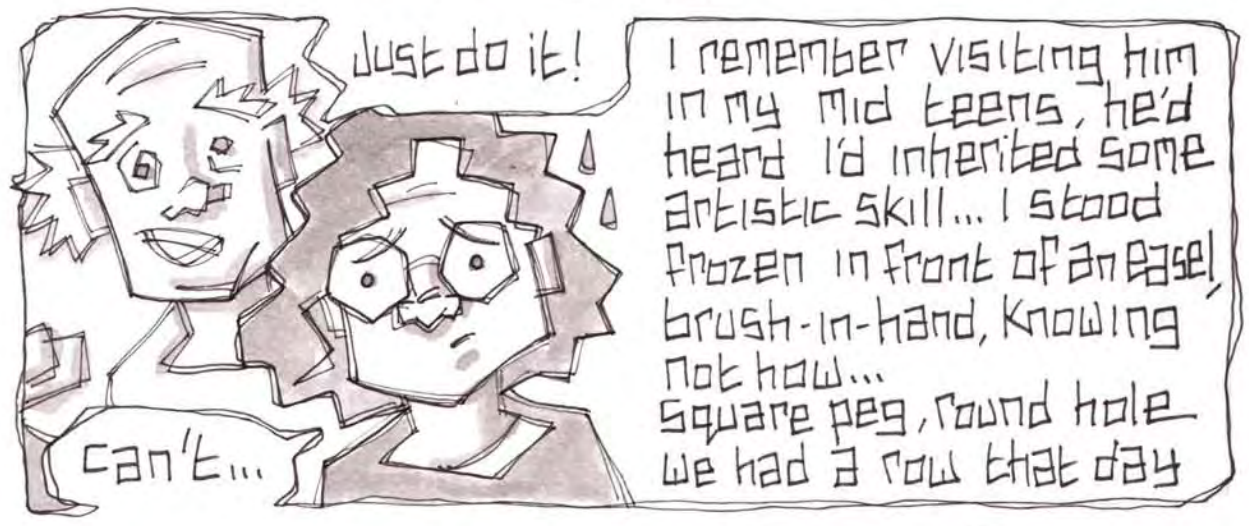 Just do it!
can't...
I remember visiting him
in my mid teens, he'd
heard I'd inherited some
artistic skill... I stood
frozen in front of an easel,
brush-in-hand, knowing
not how...
square peg, round hole
we had a row that day